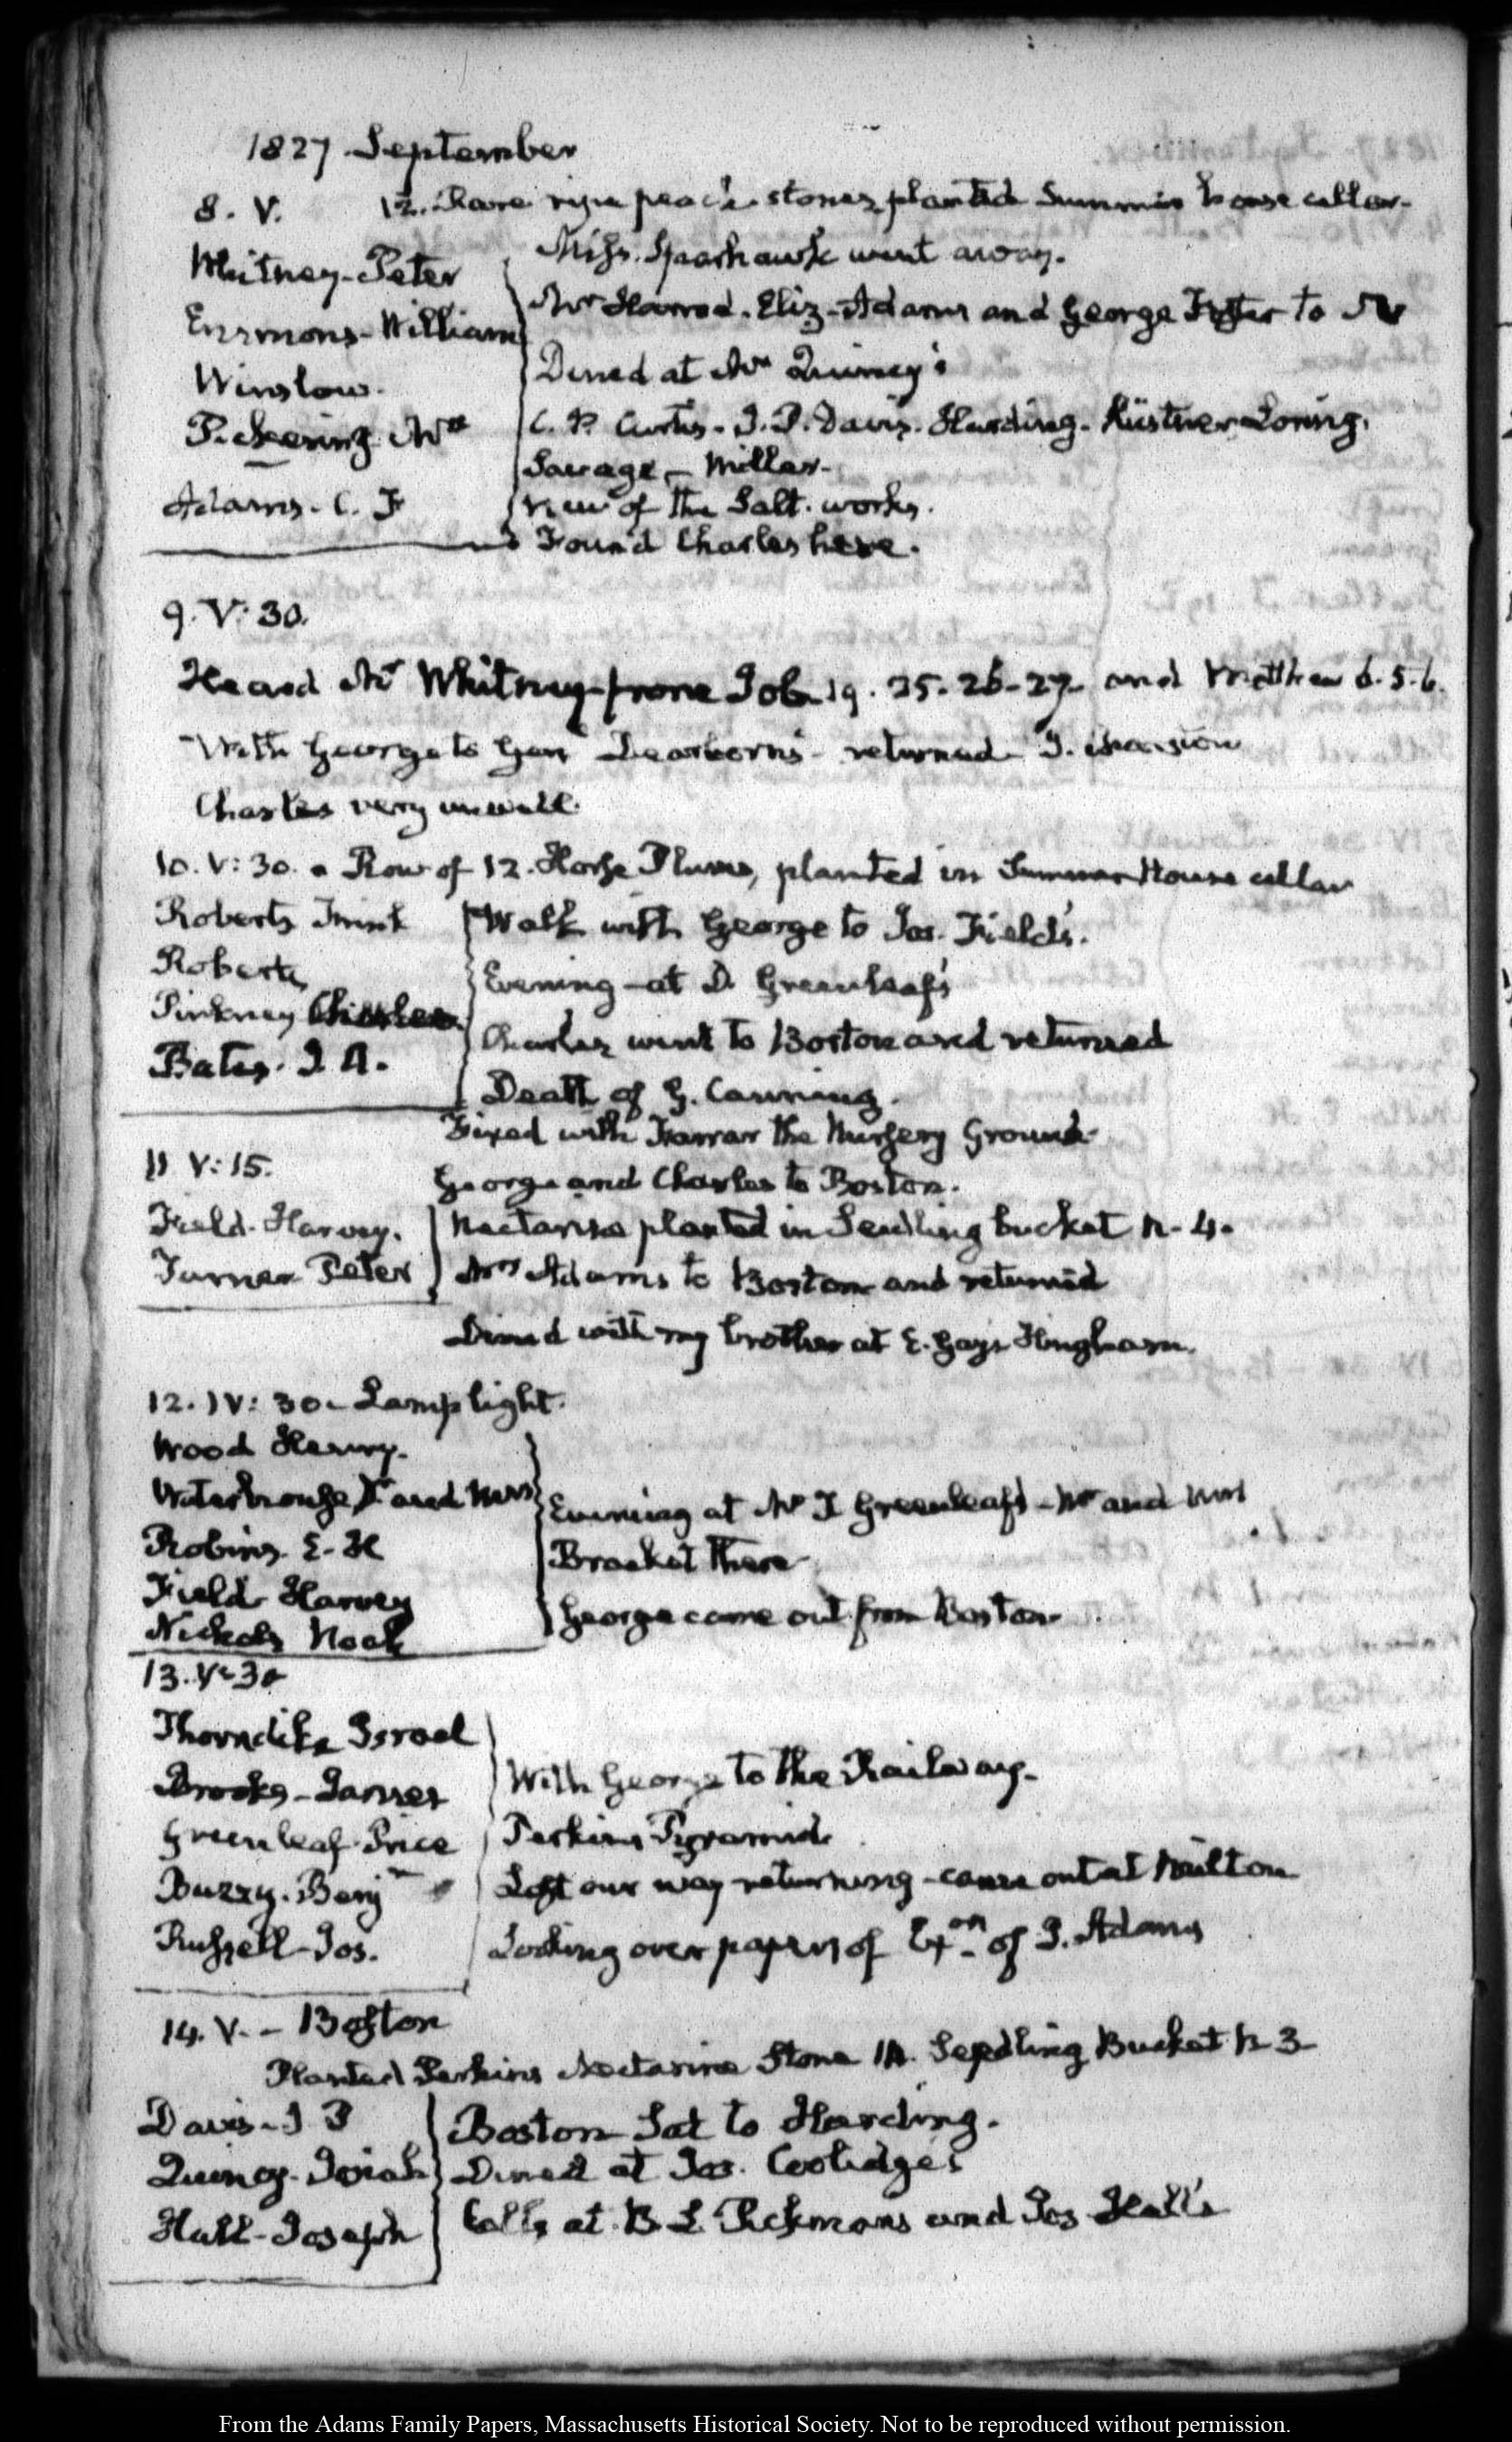 1827 September
8. V. 12. Rare ripe peach stones planted Summer house cellar.
Miss Sparhawk went away.
Whitney-Peter
Mr Harrod. Eliz-Adams and George Foster to
Emmons-William
Dined at Mr Quincy's
Winslow.
C. P. Curtis. I. P. Davis. Harding. Küstner Loring.
Pickering Mr
Savage - Miller.
Adams. C. F
View of the Salt. works.
Found Charles here.
9. V: 30.
Heard Mr Whitney from Job 19. 25. 26-27. and Matthew 6. 5-6.
With George to Genl Dearborns - returned
Charles very unwell.
10. V: 30. a Row of 12. Horse Plums, planted in Summer House cellar
Roberts
Walk with George to Jos. Field's.
Roberts
Evening - at D. Greenleaf's
Pinkney Charles
Charles went to Boston and returned
Bates. I. A.
Death of G. Canning.
Fixed with Farrar the Nursery Ground
11 V: 15.
George and Charles to Boston.
Field-Harvey.
Nectarine planted in Seedling bucket N. 4.
Turner Peter
Mrs Adams to Boston and returned
Dined with my brother at E. Gays Hingham.
12. IV: 30. Lamp light.
Wood Henry.
Waterhouse Dr and Mrs
Evening at Mr T Greenleaf's - Mr and Mrs
Robins E. H
Bracket there
Field Harvey
George came out from Boston
Nickols Noah
13. V: 30
Thorndike Israel
With George to the Railway.
Brooks-James
Perkins Pyramid
Greenleaf-Price
Lost our way returning - came out at Milton
Buzzy. Benj
Looking over papers of Exon of J. Adams
Russell-Jos.
14. V. - Boston
Planted Perkins Nectarine Stone in Seedling Bucket N 3
Davis-I P
Boston Sat to Harding.
Quincy-Josiah
Dined at Jos. Coolidge's
Hall-Joseph
Calls at B. L. Pickmans and Jos Hall's
From the Adams Family Papers, Massachusetts Historical Society. Not to be reproduced without permission.